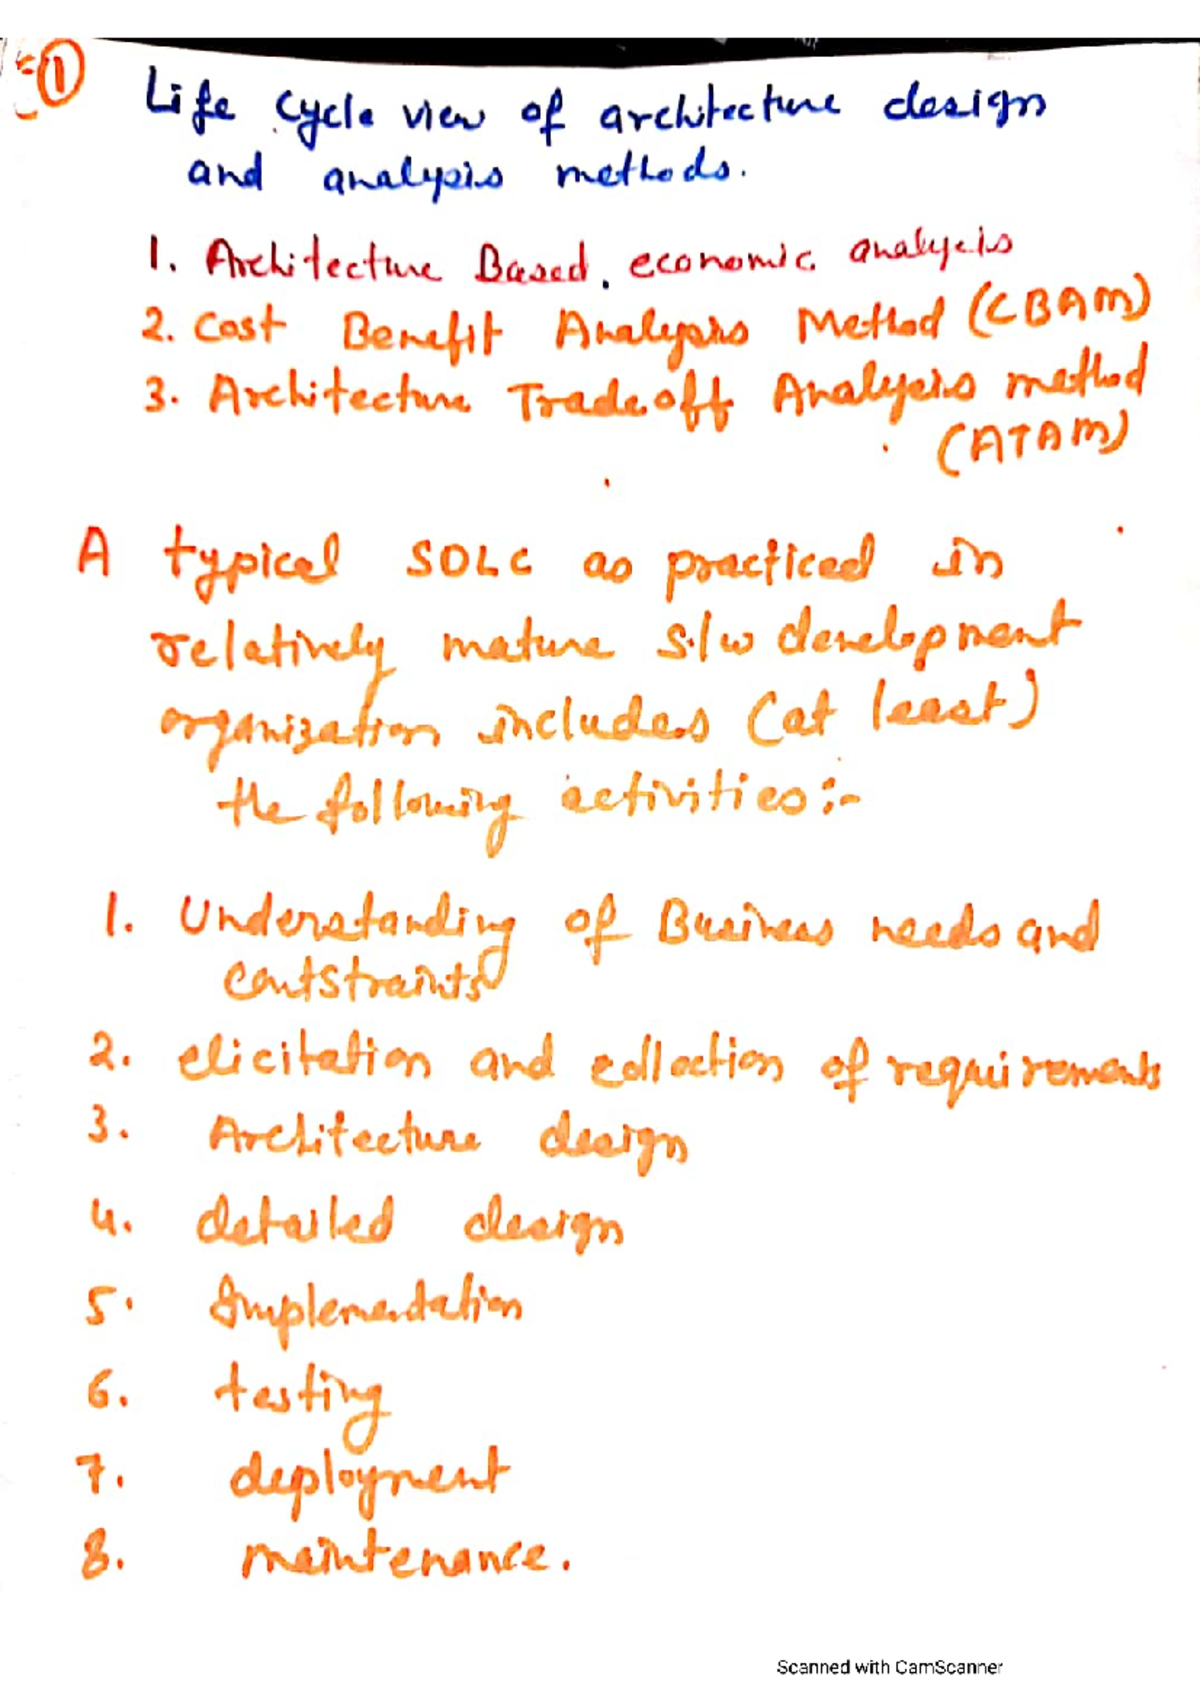 1
Life cycle view of architecture design
and analysis methods.
1. Architecture Based economic analysis
2. Cost Benefit Analysis Method (CBAM)
3. Architecture Tradeoff Analysis method
(ATAM)
A typical SDLC as practiced in
relatively mature s/w development
organization includes (at least)
the following activities:-
1. Understanding of Business needs and
contstraints
2. elicitation and collection of requirements
3. Architecture design
4. detailed design
5. Implementation
6. testing
7. deployment
8. maintenance.
Scanned with CamScanner